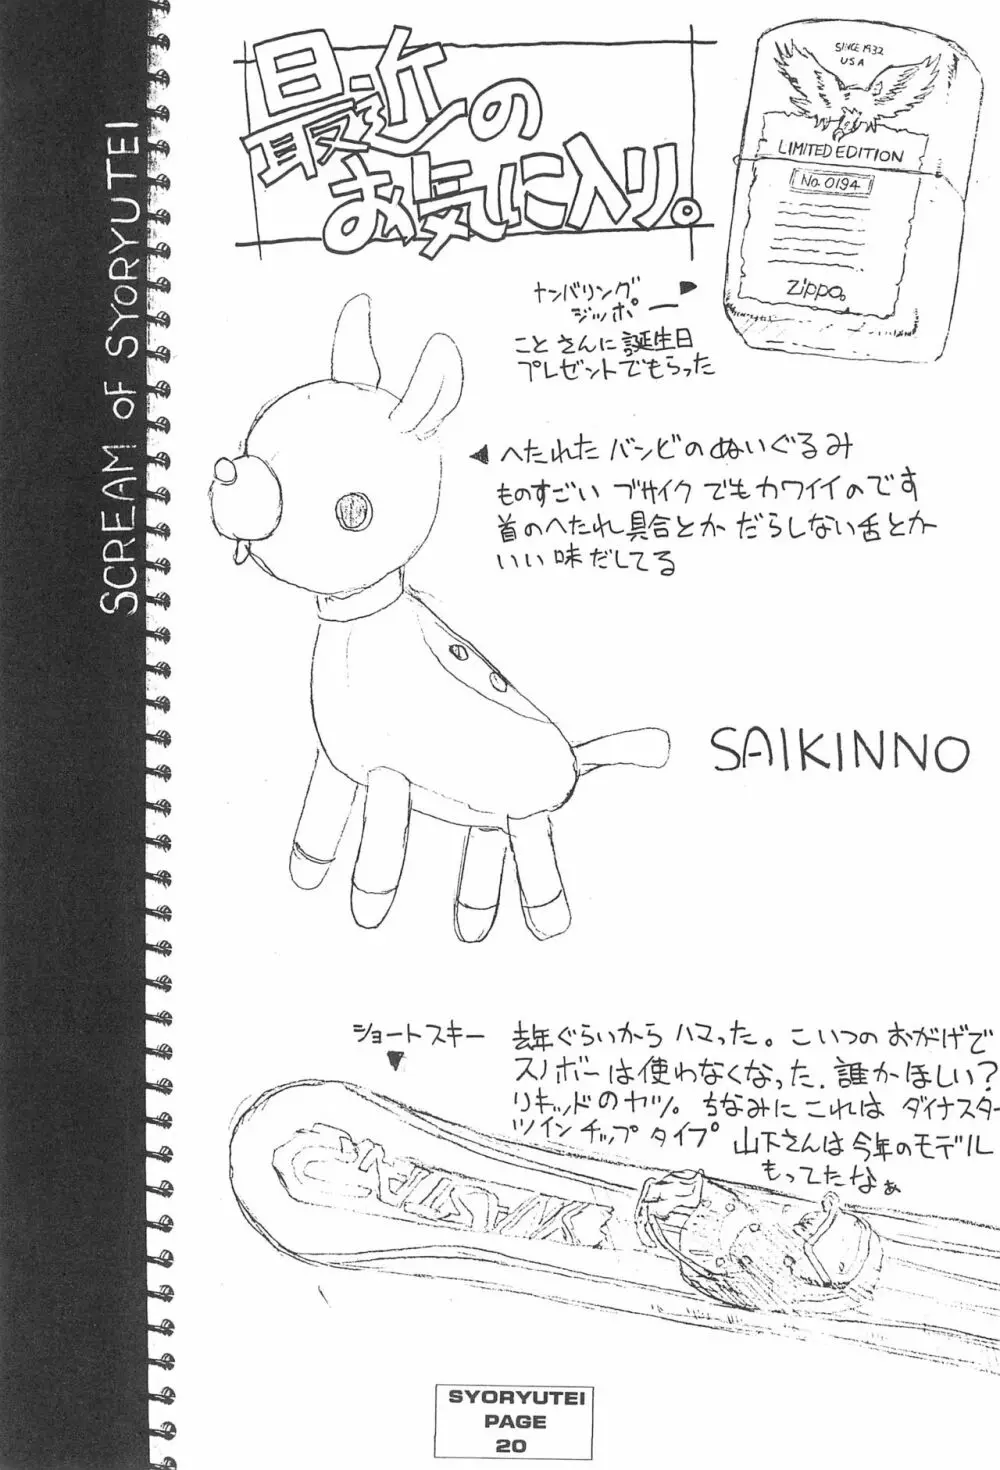 最近の
お気に入り。
SINCE 1932
USA
LIMITED EDITION
No. 0194
Zippo
ナンバリング
ジッポー
ことさんに誕生日
プレゼントでもらった
へたれた バンビのぬいぐるみ
ものすごい ブサイク でもカワイイのです
首のへたれ具合とか だらしない舌とか
いい味だしてる
SAIKINNO
ショートスキー
去年ぐらいから ハマった。こいつの おかげで
スノボーは使わなくなった。誰かほしい?
リキッドのヤツ。ちなみに これは ダイナスター
ツインチップタイプ 山下さんは今年のモデル
もってたなぁ
SCREAM OF SYORYUTEI
SYORYUTEI
PAGE
20